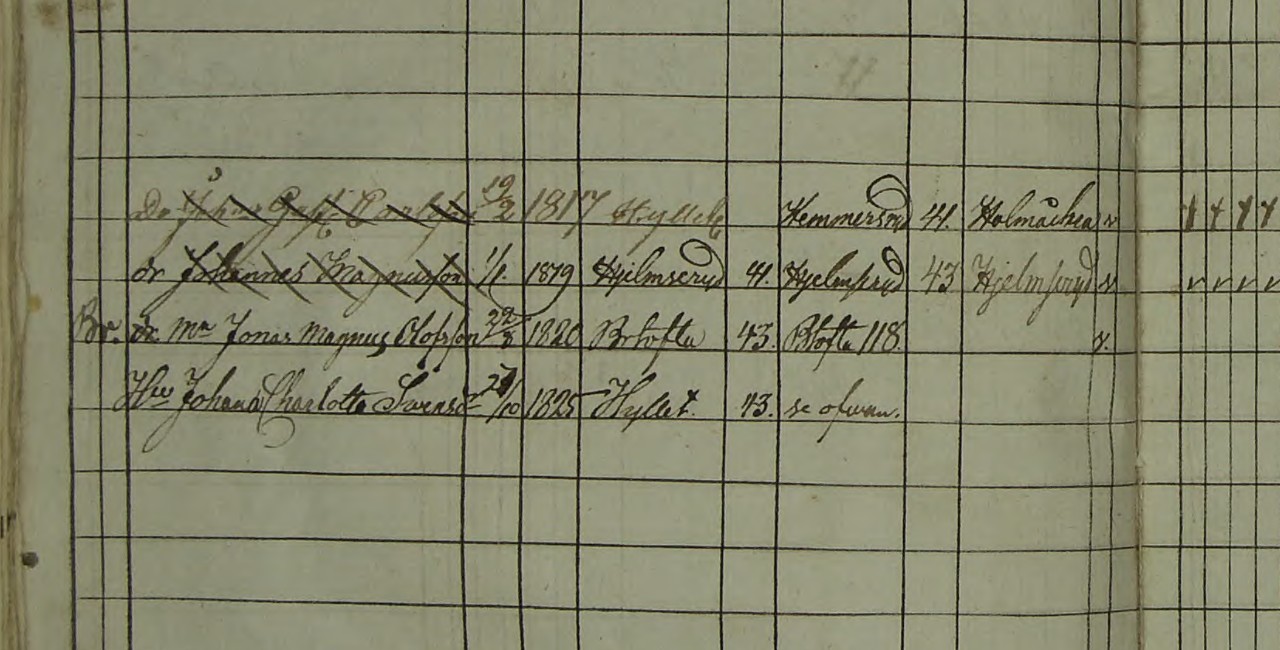 Dr Johan Gust. Carlsson 19/2 1817 Hyllete Hemmersryd 41. Halmåkra v
dr Johannes Magnusson 1/1. 1819 Hjelmseryd 41. Hjelmseryd 43 Hjelmseryd v v v v v
Br. dr. Mn Jonas Magnus Olofsson 22/8 1820 Brtofta 43. Btofta 118. v.
Hu Johana Charlotta Svensdr /10 1825 Hyllet. 43. se ofvan.